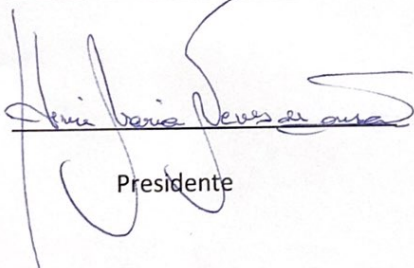 Maria Neves de Sousa
Presidente